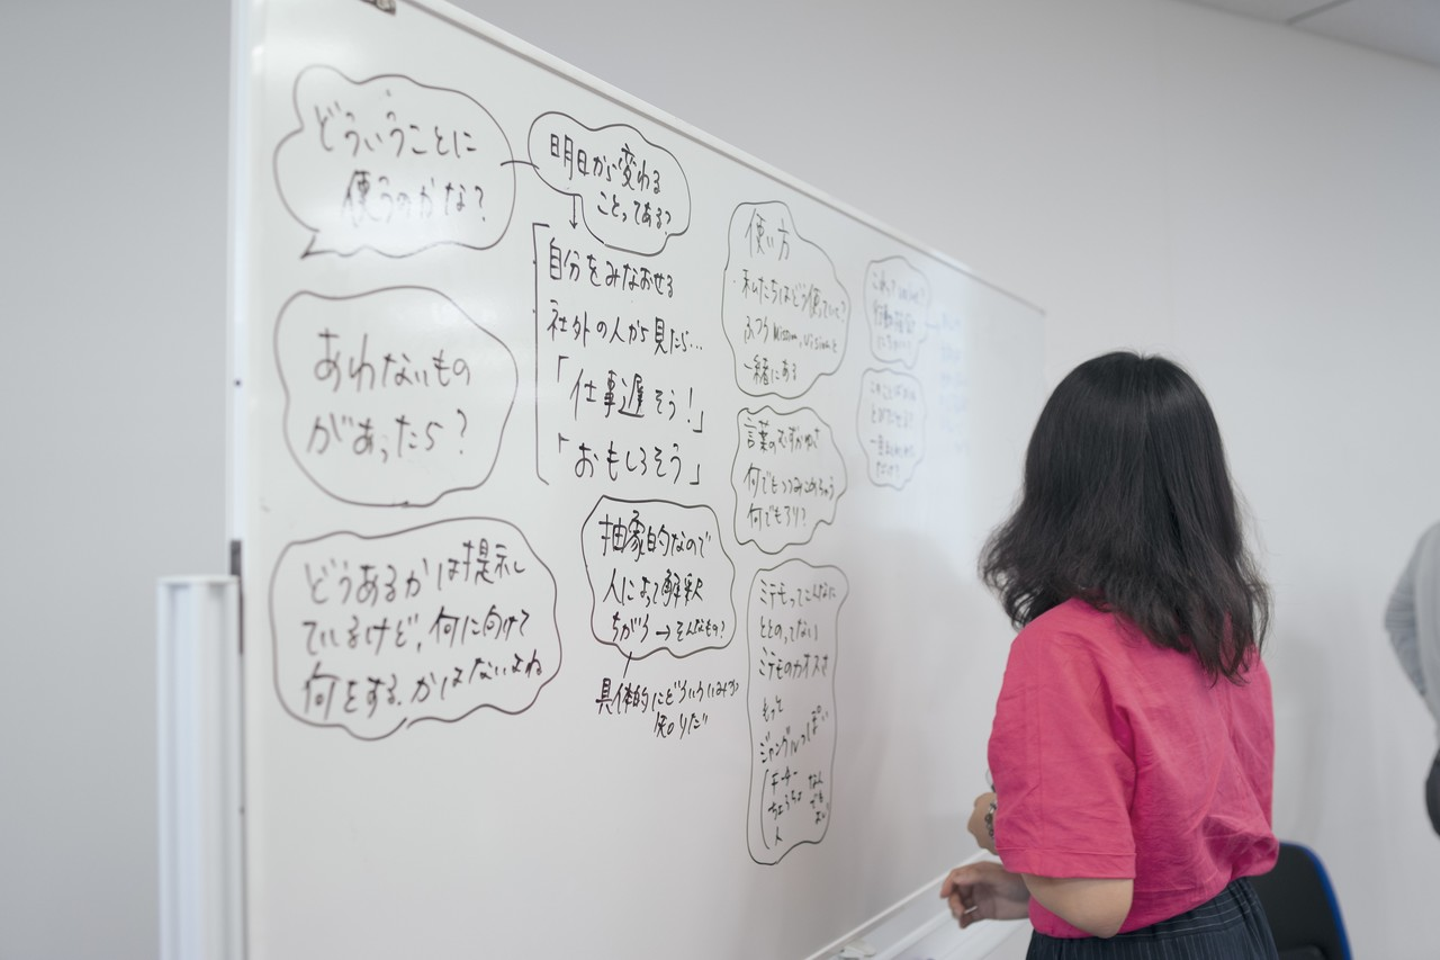 どういうことに
使うのかな?
明日から変わる
ことってある?
自分をみなおせる
社外の人から見たら…
「仕事遅そう!」
「おもしろそう」
あわないもの
があったら?
どうあるかは提示し
ているけど、何に向けて
何をする、かはないよね
抽象的なので
人によって解釈
ちがう→そんなもの?
具体的にどういういみか
知りたい
使い方
・私たちはどう使っていく?
ふつうMission,Visionと
一緒にある
言葉のむずかしさ
何でもつつみこめちゃう
何でもアリ?
ミテモってこんなに
ととのってない
ミテモのカオスさ
もっと
ジャングルっぽい
これって
行動